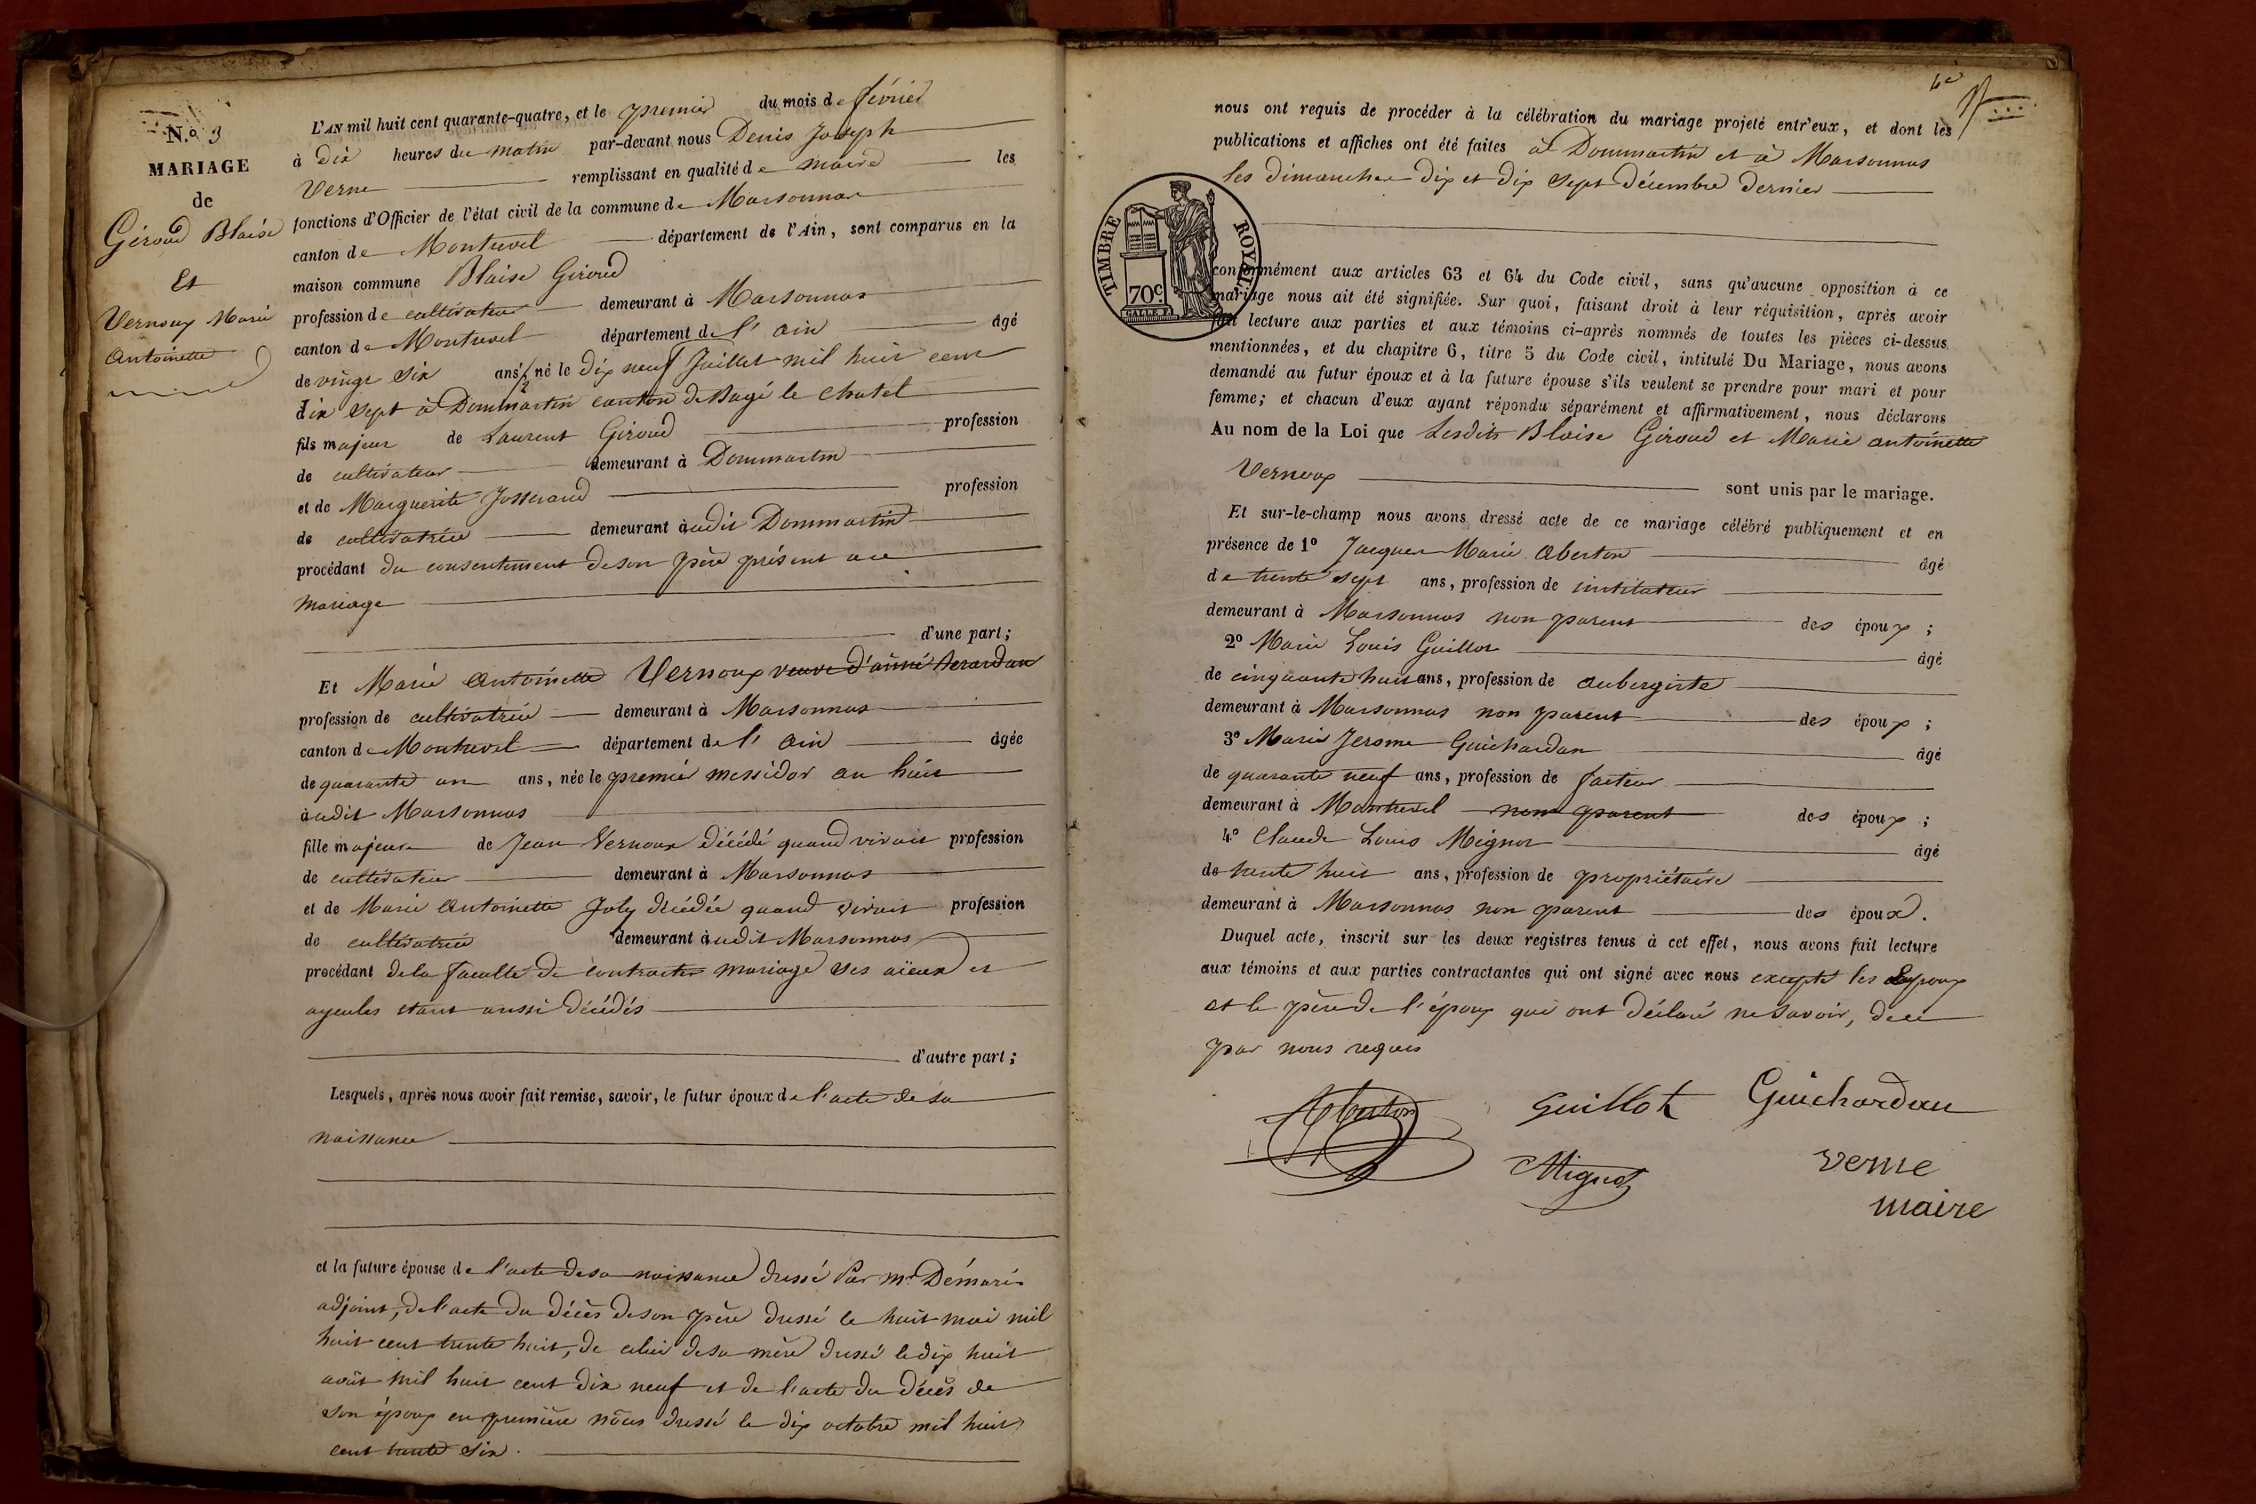 N.º 3
MARIAGE
de
Giroud Blaise
Et
Vernoux Marie
Antoinette
L'AN mil huit cent quarante-quatre, et le premier du mois de février
à dix heures du matin par-devant nous Denis Joseph
Verne remplissant en qualité de maire les
fonctions d'Officier de l'état civil de la commune de Marsonnas
canton de Montrevel département de l'Ain, sont comparus en la
maison commune Blaise Giroud
profession de cultivateur demeurant à Marsonnas
canton de Montrevel département de l' ain âgé
de vingt six ans 1/2 né le dix neuf Juillet mil huit cent
dix sept à Dommartin canton de Bagé le chatel
fils majeur de Laurent Giroud profession
de cultivateur demeurant à Dommartin
et de Marguerite Josserand profession
de cultivatrice demeurant àudit Dommartin
procédant du consentement de son père présent au
mariage
d'une part;
Et Marie Antoinette Vernoux veuve d'aimé
profession de cultivatrice demeurant à Marsonnas
canton de Montrevel département de l' ain âgée
de quarante un ans, née le premier messidor an huit
àudit Marsonnas
fille majeure de Jean Vernoux décédé quand vivait profession
de cultivateur demeurant à Marsonnas
et de Marie Antoinette Joly décédée quand vivait profession
de cultivatrice demeurant àudit Marsonnas
procédant de la faculté de contracter mariage ses aïeux et
ayeules étant aussi décédés
d'autre part;
Lesquels, après nous avoir fait remise, savoir, le futur époux de l'acte de sa
naissance
et la future épouse de l'acte de sa naissance dressé Par mr Démaris
adjoint, de l'acte du décès de son père dressé le huit mai mil
huit cent trente huit, de celui de sa mère dressé le dix huit
août mil huit cent dix neuf et de l'acte du décès de
son époux en première nôces dressé le dix octobre mil huit
cent trente six.
nous ont requis de procéder à la célébration du mariage projeté entr'eux, et dont les
publications et affiches ont été faites à Dommartin et à Marsonnas
les dimanches dix et dix sept décembre dernier
TIMBRE ROYAL
70c.
conformément aux articles 63 et 64 du Code civil, sans qu'aucune opposition à ce
mariage nous ait été signifiée. Sur quoi, faisant droit à leur réquisition, après avoir
fait lecture aux parties et aux témoins ci-après nommés de toutes les pièces ci-dessus
mentionnées, et du chapitre 6, titre 5 du Code civil, intitulé Du Mariage, nous avons
demandé au futur époux et à la future épouse s'ils veulent se prendre pour mari et pour
femme; et chacun d'eux ayant répondu séparément et affirmativement, nous déclarons
Au nom de la Loi que Lesdits Blaise Giroud et Marie antoinette
Vernoux sont unis par le mariage.
Et sur-le-champ nous avons dressé acte de ce mariage célébré publiquement et en
présence de 1º Jacques Marie Oberton âgé
de trente sept ans, profession de instituteur
demeurant à Marsonnas non parent des époux;
2º Marie Louis Guillot âgé
de cinquante huit ans, profession de aubergiste
demeurant à Marsonnas non parent des époux;
3º Marie Jerome Guichardan âgé
de quarante neuf ans, profession de facteur
demeurant à Montrevel non parent des époux;
4º Claude Louis Mignot âgé
de trente huit ans, profession de propriétaire
demeurant à Marsonnas non parent des époux.
Duquel acte, inscrit sur les deux registres tenus à cet effet, nous avons fait lecture
aux témoins et aux parties contractantes qui ont signé avec nous excepté les Epoux
et le père de l'époux qui ont déclaré ne savoir, de ce
par nous requis
Oberton Guillot Guichardan
Mignot Verne
maire